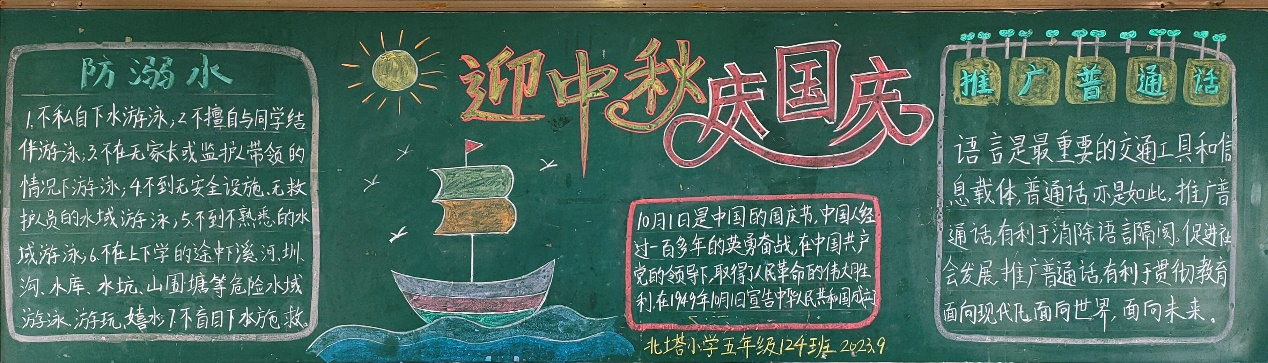 防溺水
1.不私自下水游泳;2.不擅自与同学结
伴游泳;3.不在无家长或监护人带领的
情况下游泳;4.不到无安全设施、无救
护员的水域游泳;5.不到不熟悉的水
域游泳;6.不在上下学的途中下溪、河、圳、
沟、水库、水坑、山围塘等危险水域
游泳、游玩、嬉水;7.不盲目下水施救.
迎中秋庆国庆
10月1日是中国的国庆节,中国人经
过一百多年的英勇奋战,在中国共产
党的领导下,取得了人民革命的伟大胜
利,在1949年10月1日宣告中华人民共和国成立
北塔小学五年级124班 2023.9
推广普通话
语言是最重要的交通工具和信
息载体,普通话亦是如此,推广普
通话,有利于消除语言隔阂,促进社
会发展,推广普通话,有利于贯彻教育
面向现代化,面向世界,面向未来.